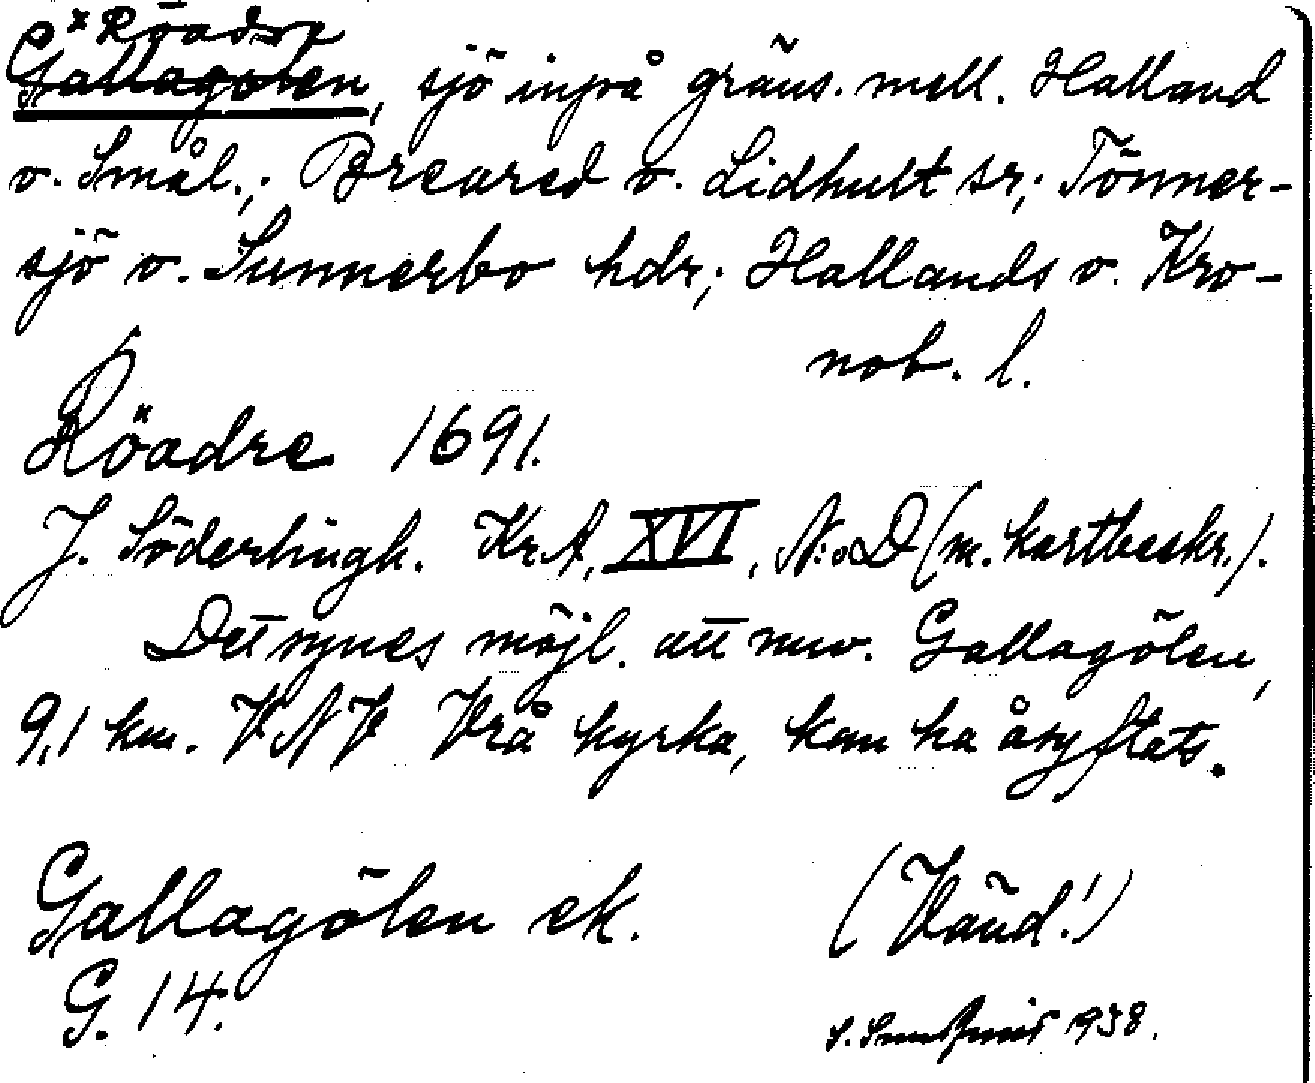 * Röadre
Gallagölen, sjö inpå gräns. mell. Halland
o. Smål.; Breared o. Lidhult sr; Tönner-
sjö o. Sunnerbo hdr; Hallands o. Kro-
nob. l.
Röadre 1691.
J. Söderlingk. KrA, XVI, N:o D (m. kartbeskr.).
Det synes möjl. att nuv. Gallagölen,
9,1 km. VNV Vrå kyrka, kan ha åsyftats.
Gallagölen ek. (Vänd!)
G. 14.
1938.